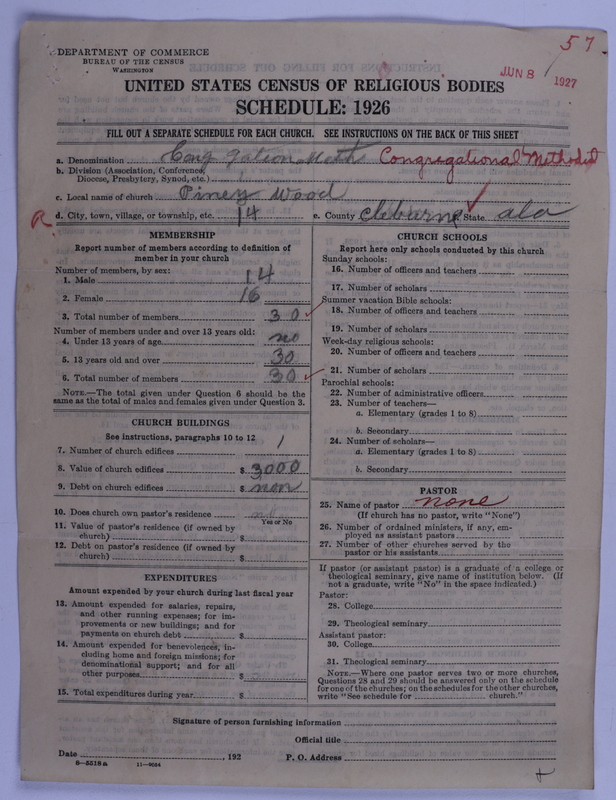 57
DEPARTMENT OF COMMERCE
BUREAU OF THE CENSUS
WASHINGTON
JUN 8 1927
UNITED STATES CENSUS OF RELIGIOUS BODIES
SCHEDULE: 1926
FILL OUT A SEPARATE SCHEDULE FOR EACH CHURCH. SEE INSTRUCTIONS ON THE BACK OF THIS SHEET
a. Denomination Cong gation Meth Congregational Methodist
b. Division (Association, Conference, Diocese, Presbytery, Synod, etc.)
c. Local name of church Piney Wood
R d. City, town, village, or township, etc. 14 e. County Cleburne State ala
MEMBERSHIP
Report number of members according to definition of member in your church
Number of members, by sex:
1. Male 14
2. Female 16
3. Total number of members 30
Number of members under and over 13 years old:
4. Under 13 years of age no
5. 13 years old and over 30
6. Total number of members 30
NOTE.—The total given under Question 6 should be the same as the total of males and females given under Question 3.
CHURCH BUILDINGS
See instructions, paragraphs 10 to 12
7. Number of church edifices 1
8. Value of church edifices $ 3000
9. Debt on church edifices $ non
10. Does church own pastor's residence no
Yes or No
11. Value of pastor's residence (if owned by church) $
12. Debt on pastor's residence (if owned by church) $
EXPENDITURES
Amount expended by your church during last fiscal year
13. Amount expended for salaries, repairs, and other running expenses; for improvements or new buildings; and for payments on church debt $
14. Amount expended for benevolences, including home and foreign missions; for denominational support; and for all other purposes $
15. Total expenditures during year $
CHURCH SCHOOLS
Report here only schools conducted by this church
Sunday schools:
16. Number of officers and teachers
17. Number of scholars
Summer vacation Bible schools:
18. Number of officers and teachers
19. Number of scholars
Week-day religious schools:
20. Number of officers and teachers
21. Number of scholars
Parochial schools:
22. Number of administrative officers
23. Number of teachers—
a. Elementary (grades 1 to 8)
b. Secondary
24. Number of scholars—
a. Elementary (grades 1 to 8)
b. Secondary
PASTOR
25. Name of pastor none
(If church has no pastor, write "None")
26. Number of ordained ministers, if any, employed as assistant pastors
27. Number of other churches served by the pastor or his assistants
If pastor (or assistant pastor) is a graduate of a college or theological seminary, give name of institution below. (If not a graduate, write "No" in the space indicated.)
Pastor:
28. College
29. Theological seminary
Assistant pastor:
30. College
31. Theological seminary
NOTE.—Where one pastor serves two or more churches, Questions 28 and 29 should be answered only on the schedule for one of the churches; on the schedules for the other churches, write "See schedule for church."
Signature of person furnishing information
Official title
Date , 192 P. O. Address
8—5518a 11—9034